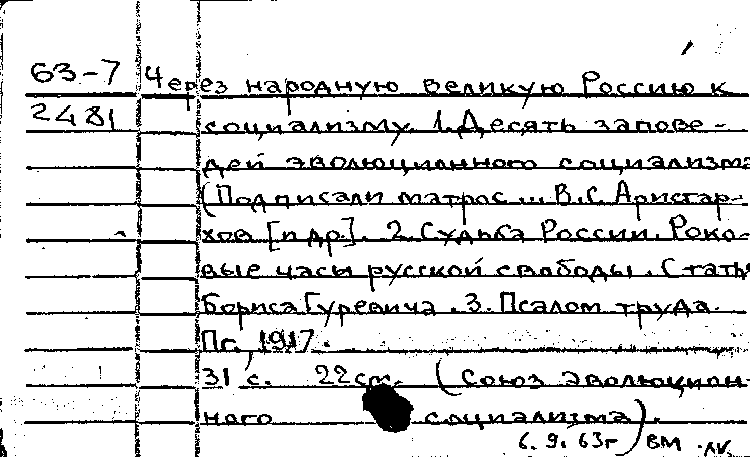 63-7 Через народную великую Россию к
2481 социализму. 1. Десять запове-
дей эволюционного социализма
(Подписали матрос ... В.С. Аристар-
хов [и др.]. 2. Судьба России. Роко-
вые часы русской свободы. Статья
Бориса Гуревича. 3. Псалом труда.
Пг., 1917.
31 с. 22 см. (Союз эволюцион-
ного социализма).
6.9.63г ВМ